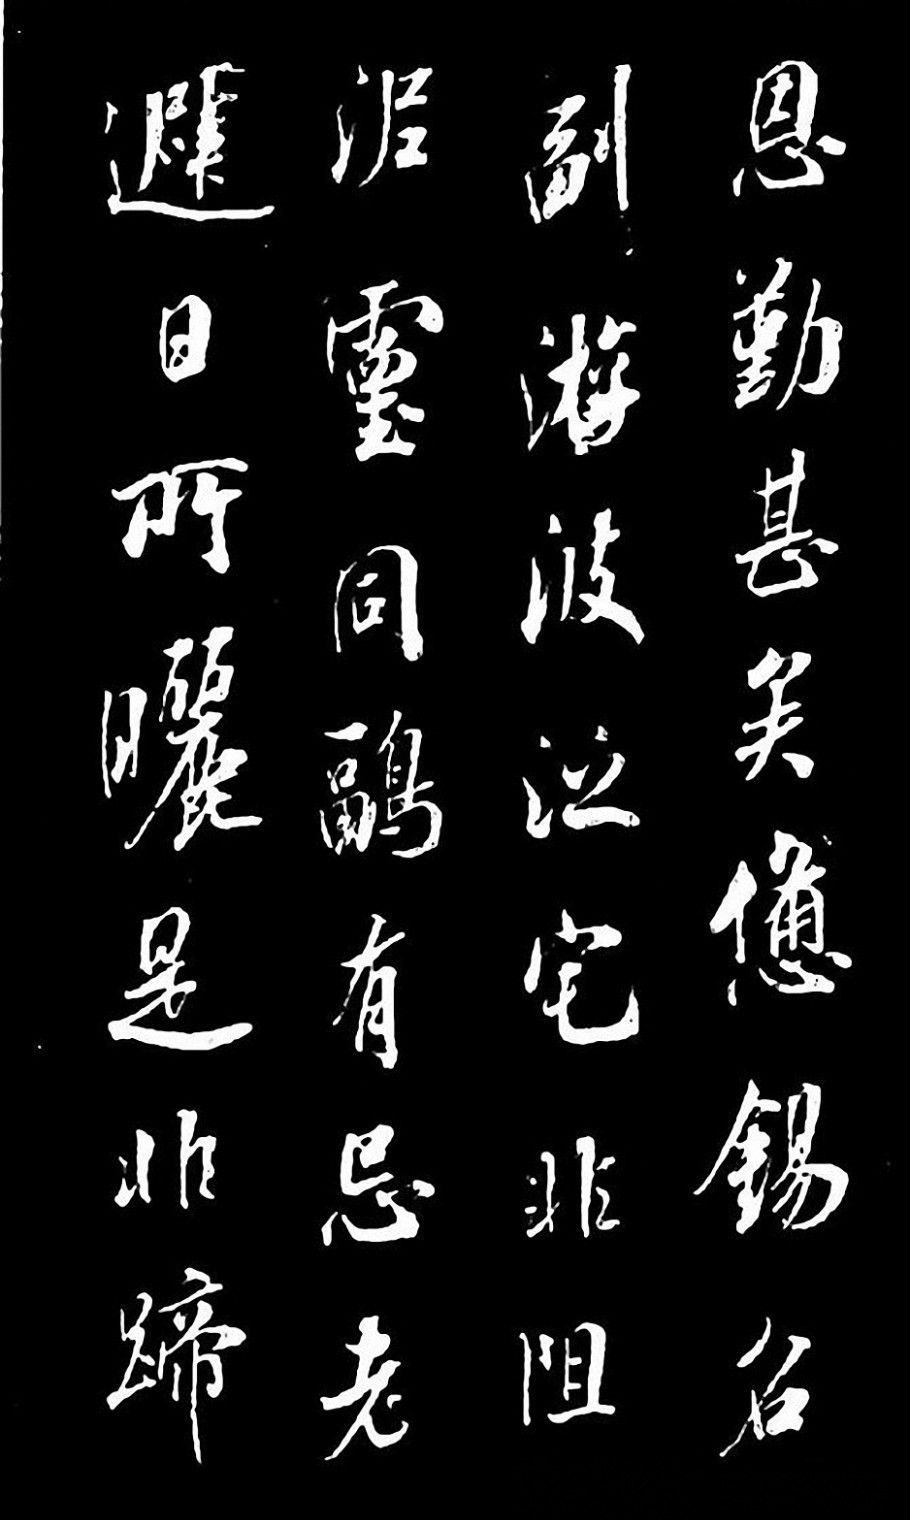 恩勤甚矣憊錫名
副游波泛宅非阻
泥靈同鷗有忌老
遲日所曬是非蹄